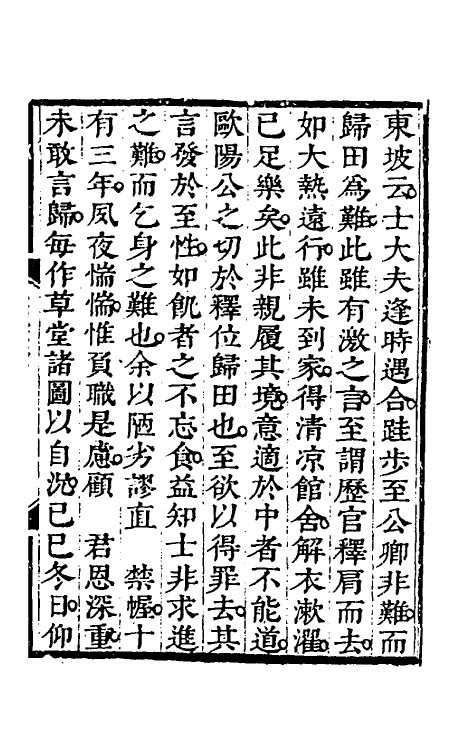 東坡云士大夫逢時遇合跬步至公卿非難而
歸田爲難此雖有激之言至謂歷官釋肩而去
如大熱遠行雖未到家得清凉館舍解衣漱濯
已足樂矣此非親履其境意適於中者不能道
歐陽公之切於釋位歸田也至欲以得罪去其
言發於至性如飢者之不忘食益知士非求進
之難而乞身之難也余以陋劣謬直　禁幄十
有三年夙夜惴惴惟負職是慮顧　君恩深重
未敢言歸每作草堂諸圖以自况己巳冬日仰